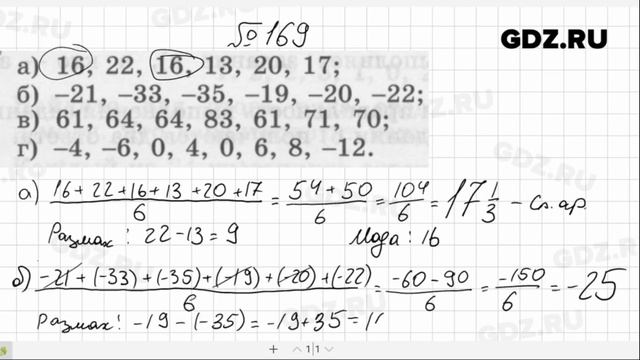 №169
GDZ.RU
а) 16, 22, 16, 13, 20, 17;
б) –21, –33, –35, –19, –20, –22;
в) 61, 64, 64, 83, 61, 71, 70;
г) –4, –6, 0, 4, 0, 6, 8, –12.
а) (16+22+16+13+20+17)/6 = (54+50)/6 = 104/6 = 17 1/3 – Ср. ар.
Размах: 22-13=9 Мода: 16
б) (-21+(-33)+(-35)+(-19)+(-20)+(-22))/6 = (-60-90)/6 = -150/6 = -25
Размах: -19-(-35)=-19+35=1
+ 1|1